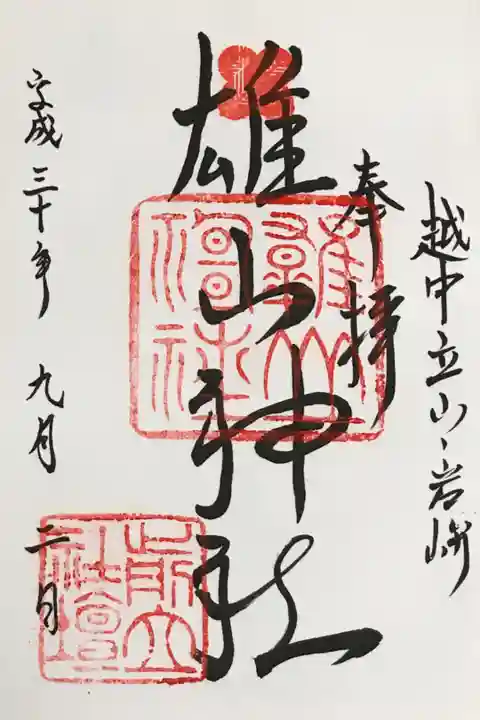 越中立山、岩峅
奉拝
雄山神社
平成三十年 九月 二日
雄山神社
前立社壇